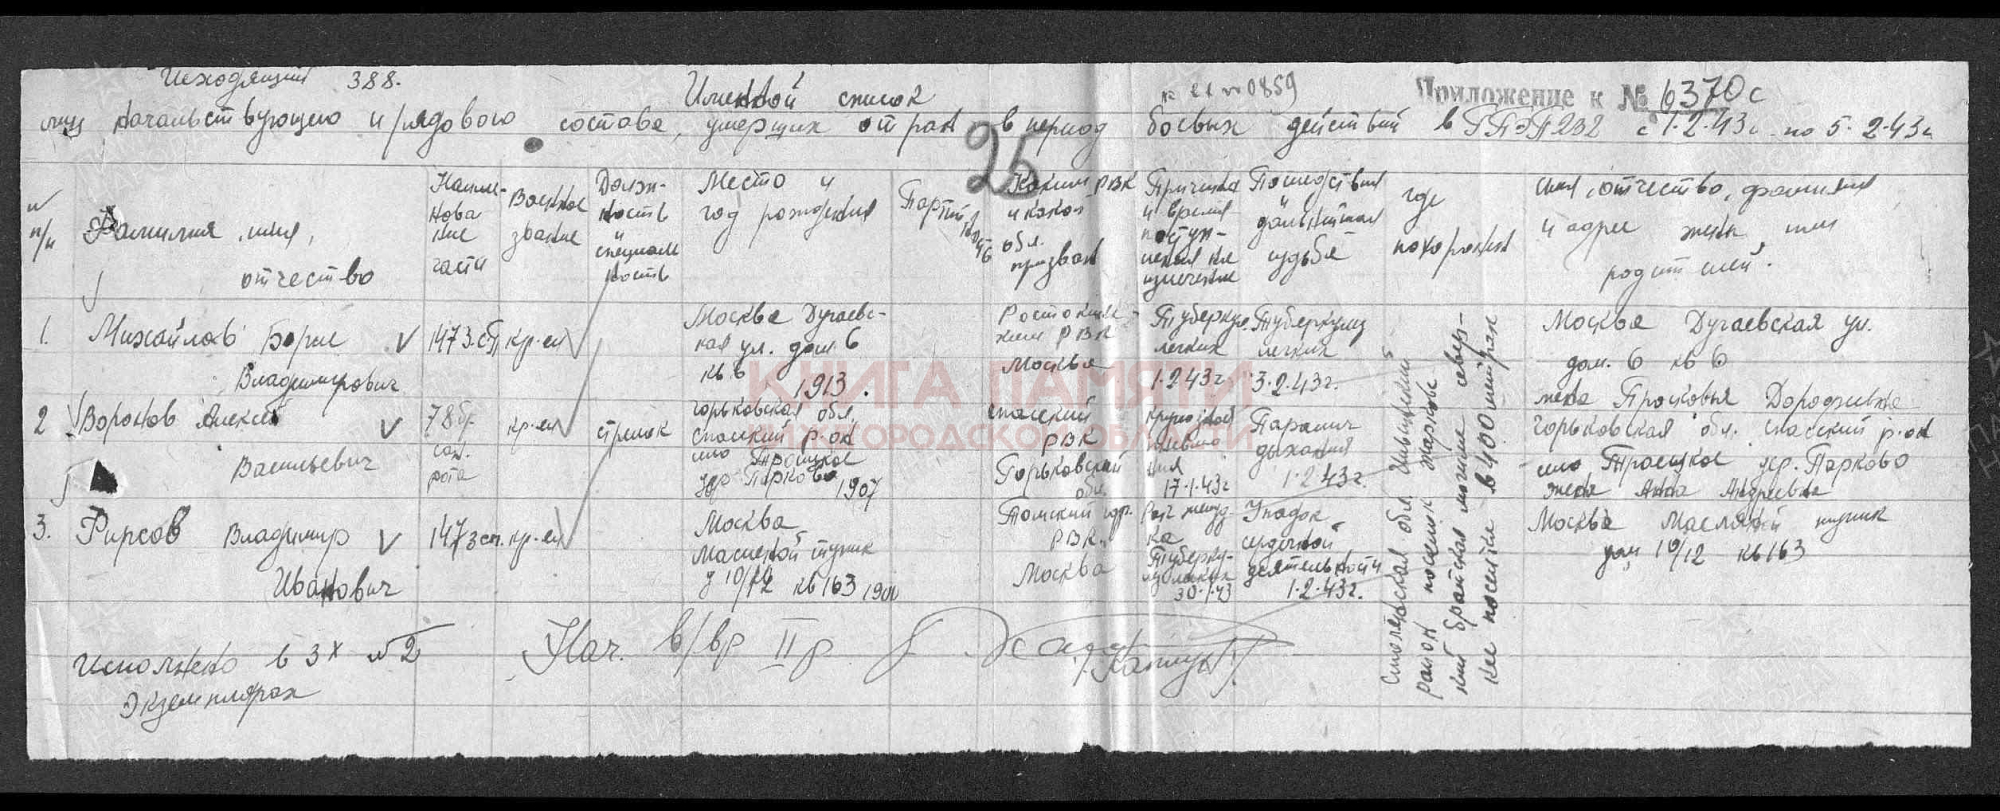 Исходящий 388.
Именной список
к вх № 0859
Приложение к № 6370с
лиц начальствующего и рядового состава, умерших от ран в период боевых действий в ППЭП 232 с 1.2.43г. по 5.2.43г
25
№ п/п
Фамилия, имя, отчество
Наиме-
нова
ние
части
Военное
звание
Долж-
ность
и
специаль
ность
Место и
год рождения
Партийность
Каким РВК
и какой
обл.
призван
Причина
и время
поступ-
ления
Последствия
и
дальнейшая
судьба
где
похоронен
имя, отчество, фамилия
и адрес жены или
родителей.
1.
Михайлов Борис
Владимирович
1473.сп
кр-ец
Москва Дугаевс-
кая ул. дом 6
кв 6
1913.
Ростокин-
ским РВК
Москва
Туберкул
легких
1.2.43г
Туберкулез
легких
3.2.43г.
Москва Дугаевская ул.
дом. 6 кв 6
жена Просковья Дорофеевна
2
Воронов Алексей
Васильевич
78 бр.
сан.
рота
кр-ец
стрелок
Горьковская обл.
Спасский р-он
село Троицкое
дер Парково
1907
Спасский
РВК
Горьковской
обл.
17.1.43г
Паралич
дыхания
1.2.43г.
Горьковская обл. Спасский р-он
село Троицкое дер. Парково
жена Анна Андреевна
3.
Фирсов Владимир
Иванович
1473 сп.
кр-ец
Москва
Масленой тупик
д 10/12 кв 163 1900
РВК.
Москва
Рак желуд-
ка
Туберку-
30.1.43
Упадок
сердечной
деятельности
1.2.43г.
Москва Масляной тупик
дом 10/12 кв 163
Смоленская обл. Ильинский
район поселок Жарковс
кий братская могила север-
нее поселка в 400 метрах
Исполнено в 3х № 2
Экземплярах
Нач. в/вр II р
КНИГА ПАМЯТИ
НИЖЕГОРОДСКОЙ ОБЛАСТИ